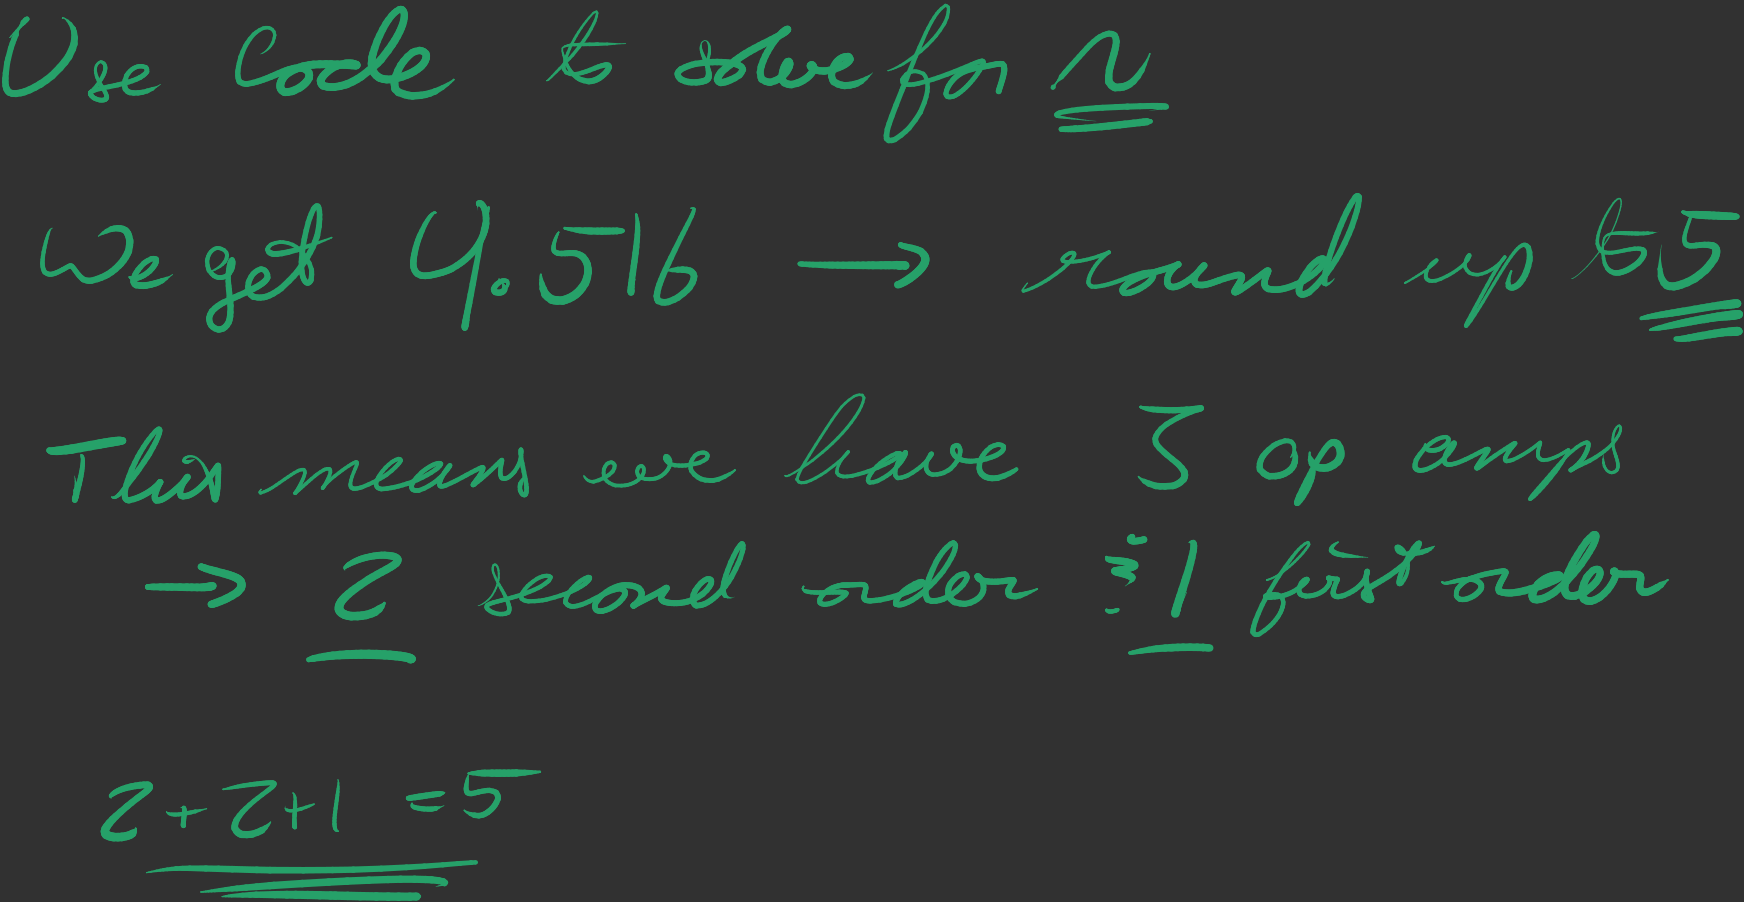 Use Code to solve for n
We get 4.516 → round up to 5
This means we have 3 op amps
→ 2 second order & 1 first order
2+2+1 = 5